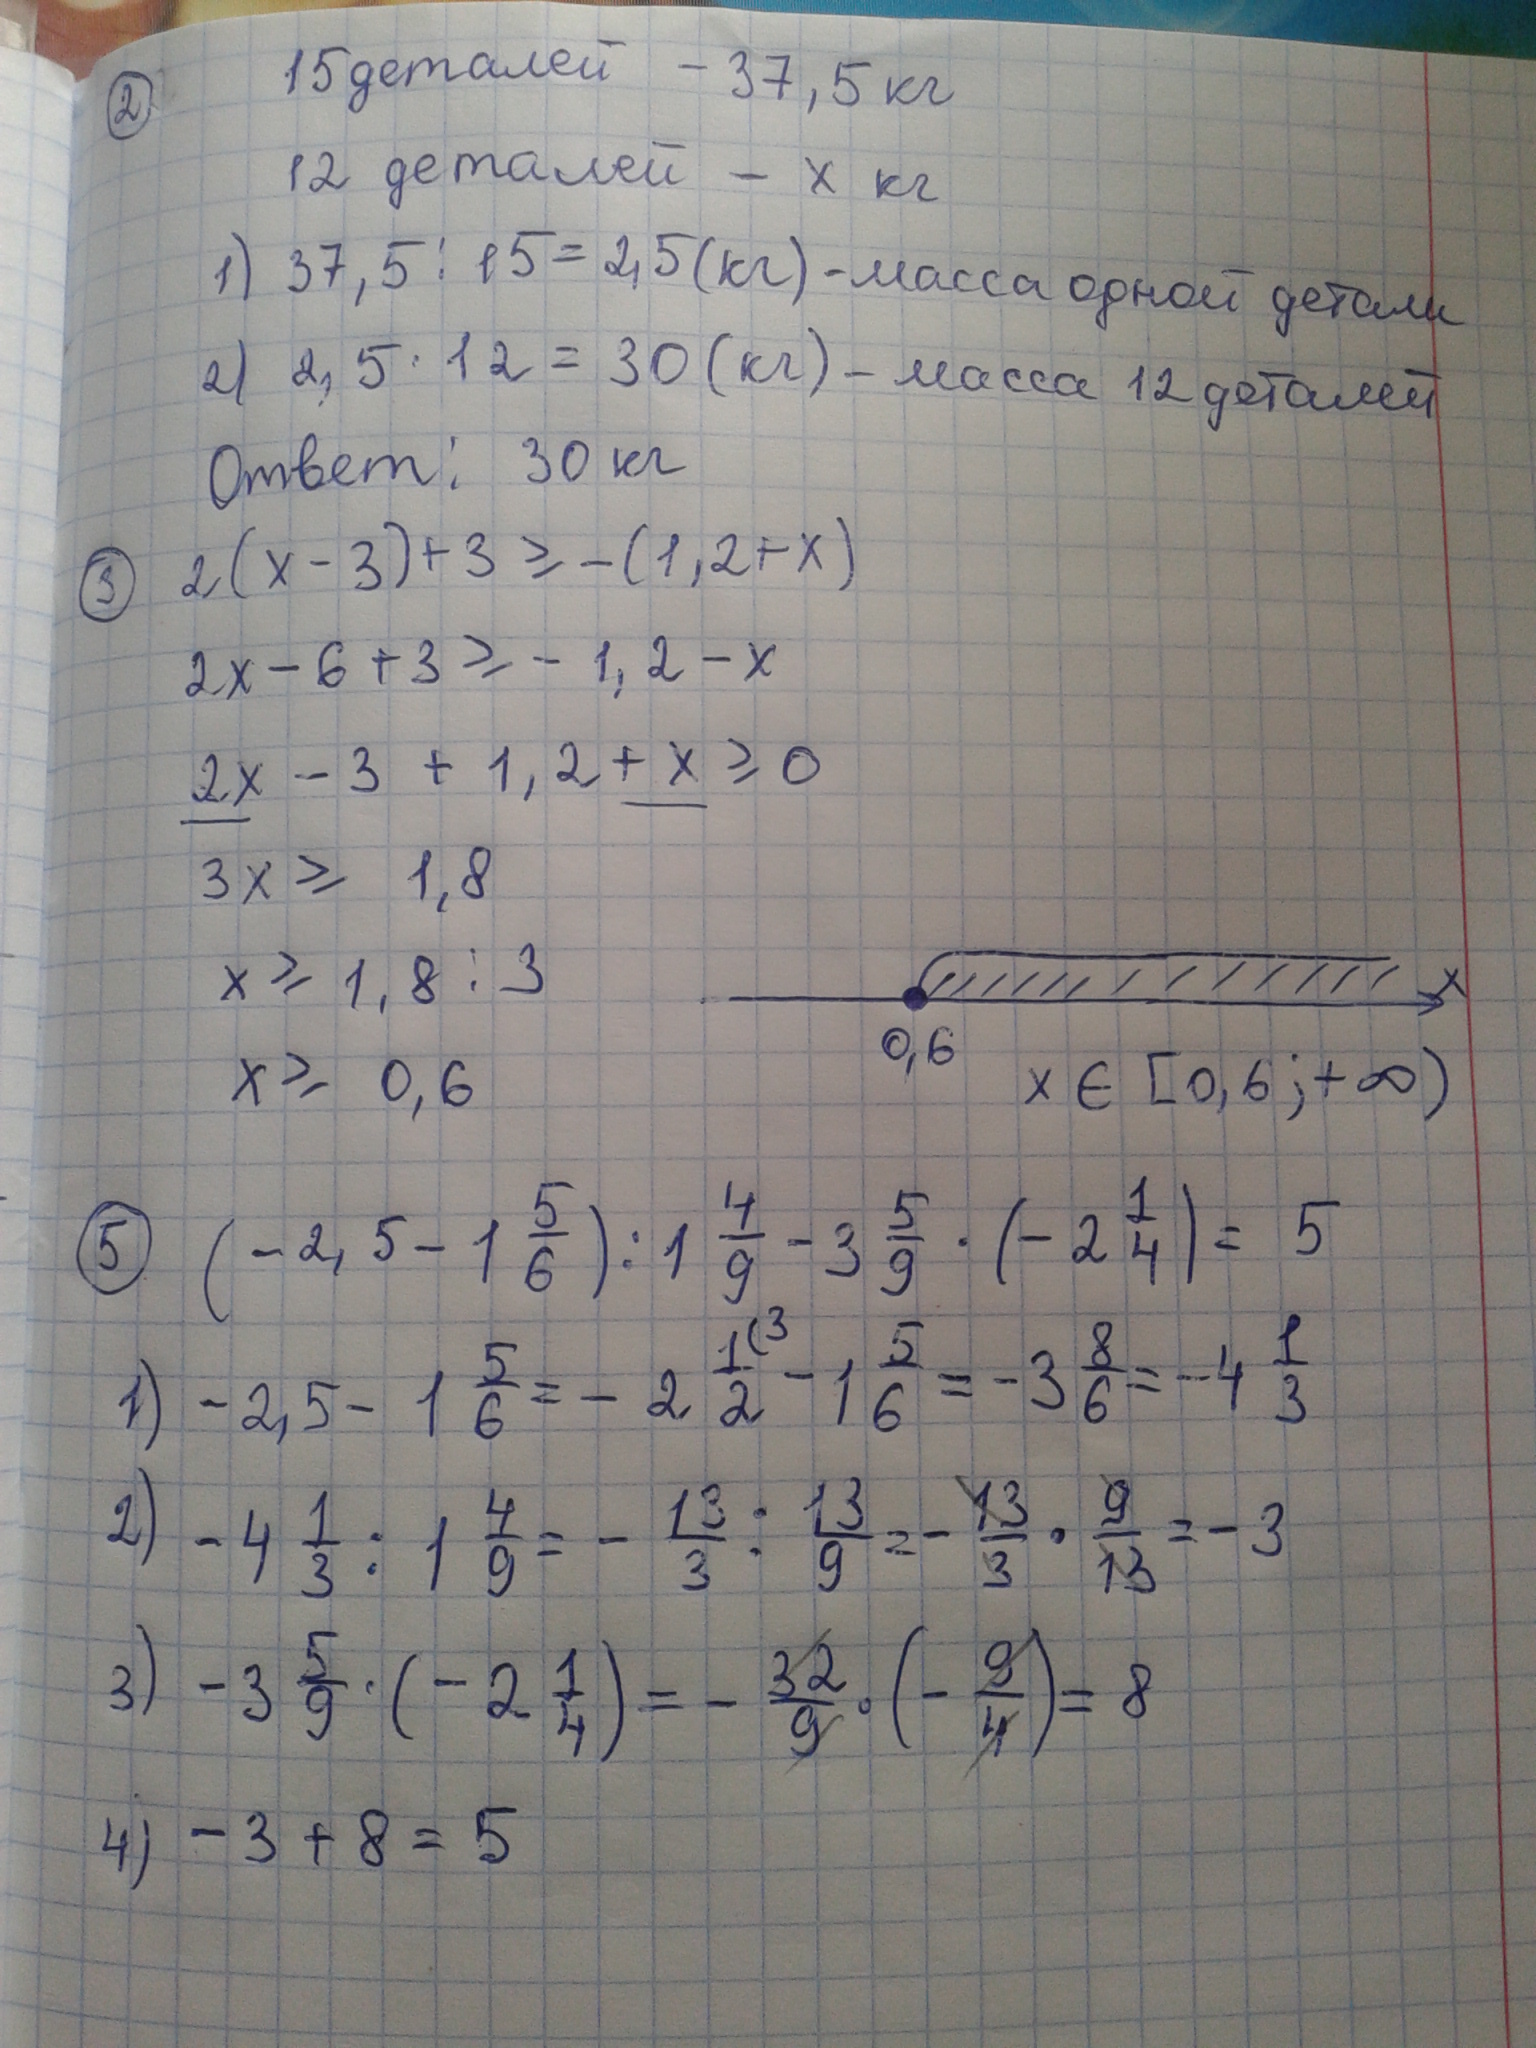 ② 15 деталей - 37,5 кг
12 деталей - x кг
1) 37,5 : 15 = 2,5 (кг) - масса одной детали
2) 2,5 · 12 = 30 (кг) - масса 12 деталей
Ответ: 30 кг
③ 2(x - 3) + 3 ≥ -(1,2 + x)
2x - 6 + 3 ≥ - 1,2 - x
2x - 3 + 1,2 + x ≥ 0
3x ≥ 1,8
x ≥ 1,8 : 3
x
0,6
x ≥ 0,6
x ∈ [0,6 ; +∞)
⑤ (-2,5 - 1 5/6) : 1 4/9 - 3 5/9 · (-2 1/4) = 5
1) -2,5 - 1 5/6 = -2 1/2 (3 - 1 5/6 = -3 8/6 = -4 1/3
2) -4 1/3 : 1 4/9 = - 13/3 : 13/9 = - 13/3 · 9/13 = -3
3) -3 5/9 · (-2 1/4) = - 32/9 · (- 9/4) = 8
4) -3 + 8 = 5